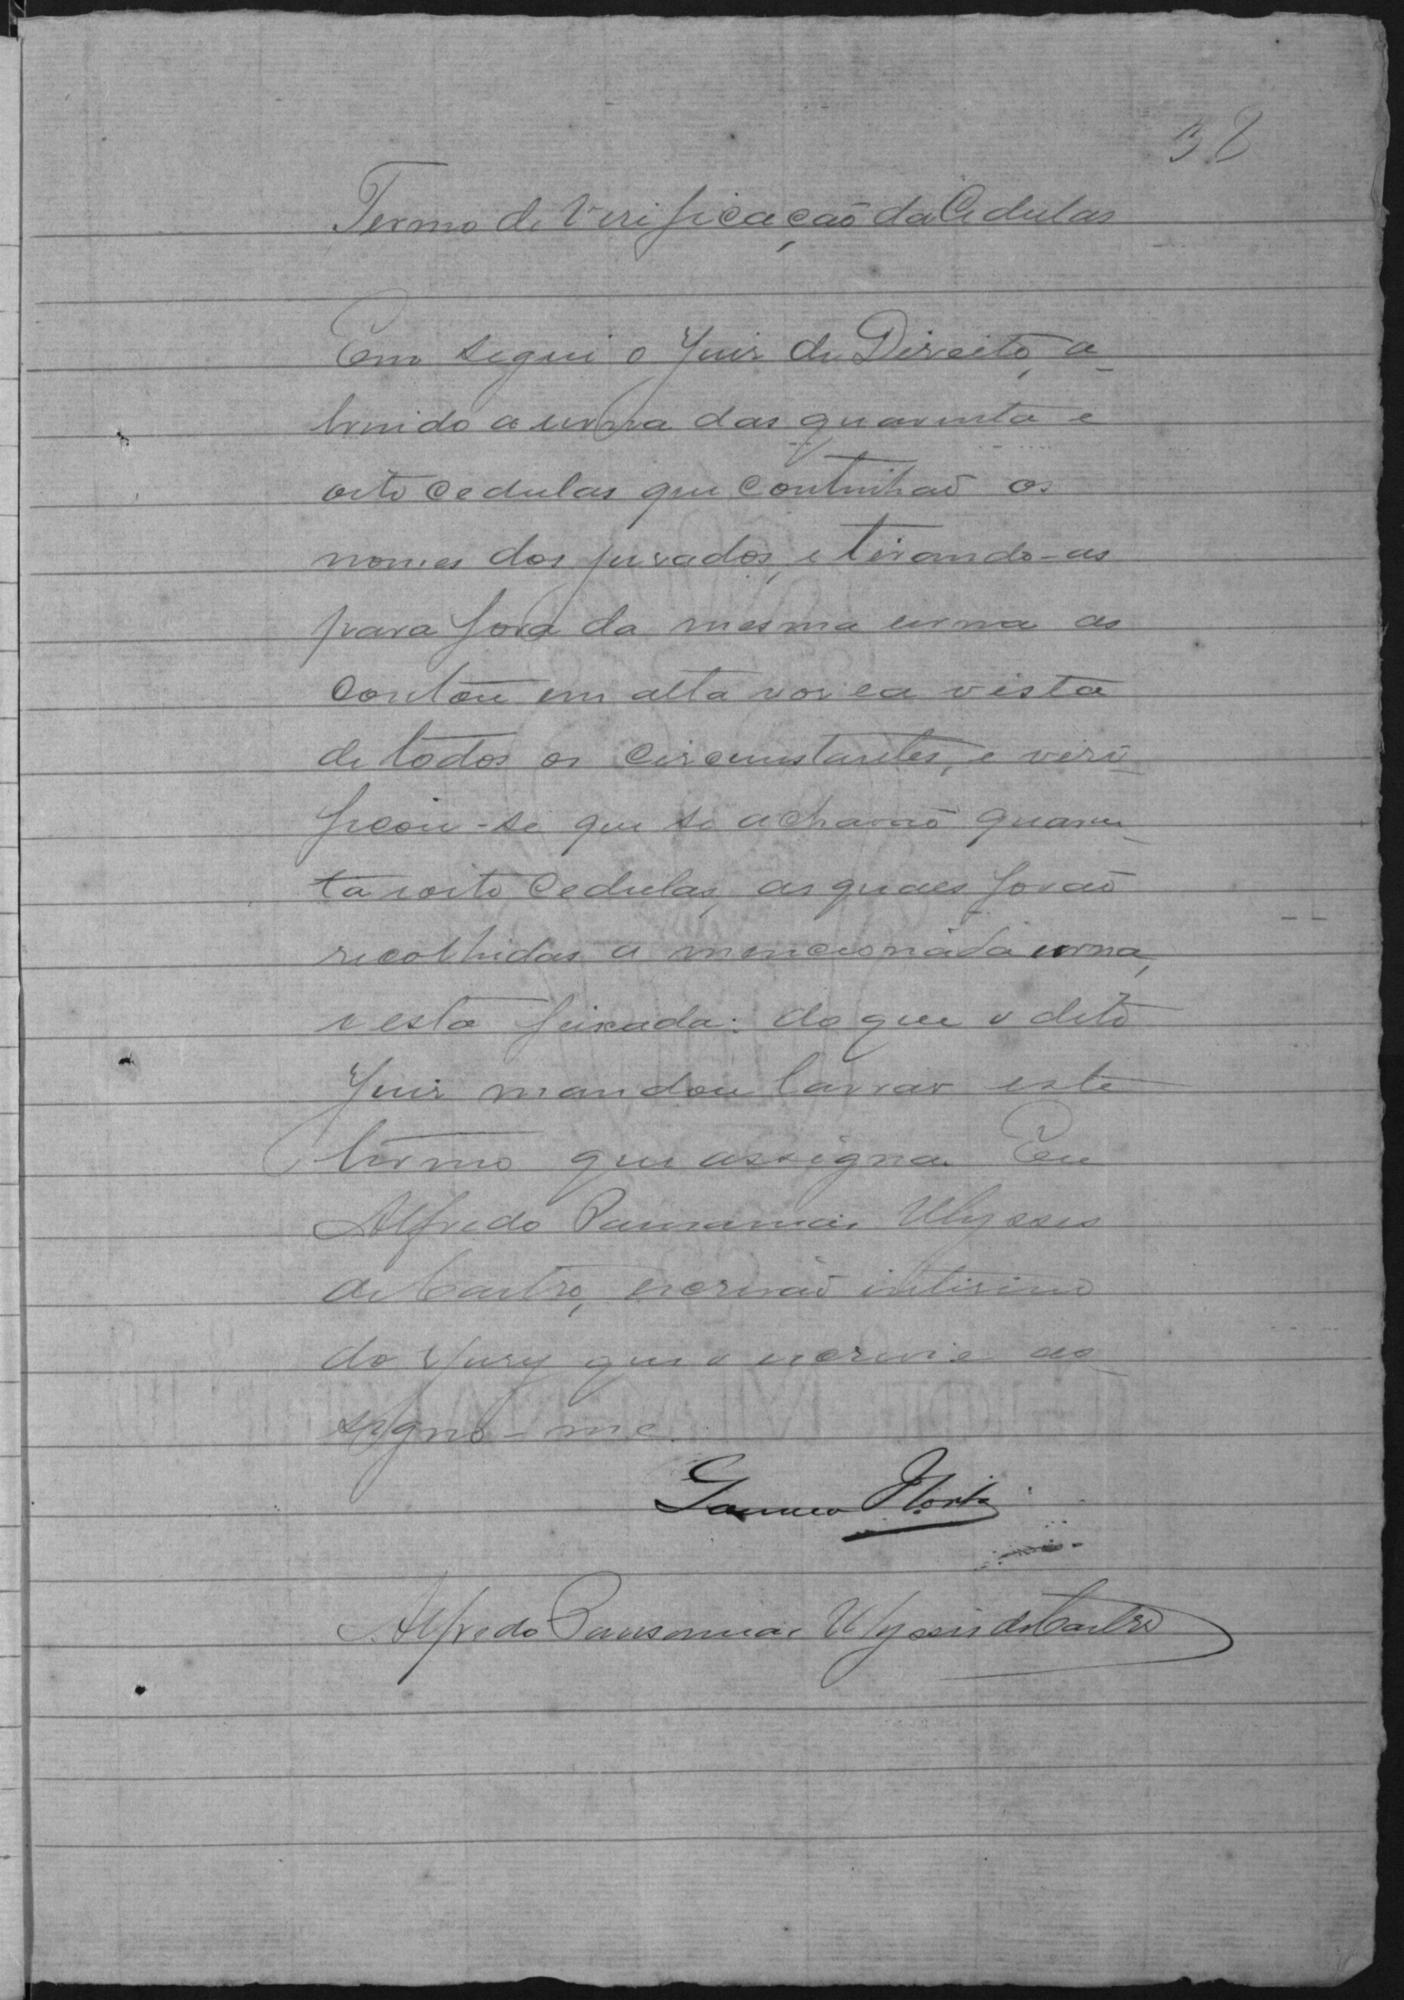 38
Termo de Verificação da Cedulas
Em segui o Juiz de Direito, a-
brindo a urna das quarenta e
oito cedulas que continhaõ os
nomes dos jurados, e tirando-as
para fora da mesma urna as
contou em alta voz e a vista
de todos os circumstantes, e veri-
ficou-se que se achavaõ quaren-
ta e oito cedulas, as quaes foraõ
recolhidas a mencionada urna,
e esta feixada: do que o dito
Juiz mandou lavrar este
termo que assigna. Eu
Alfredo Pausanias Ulysses
de Castro, escrivaõ interino
do Jury que o escrevi e as-
signo-me.
Alfredo Pausanias Ulysses de Castro